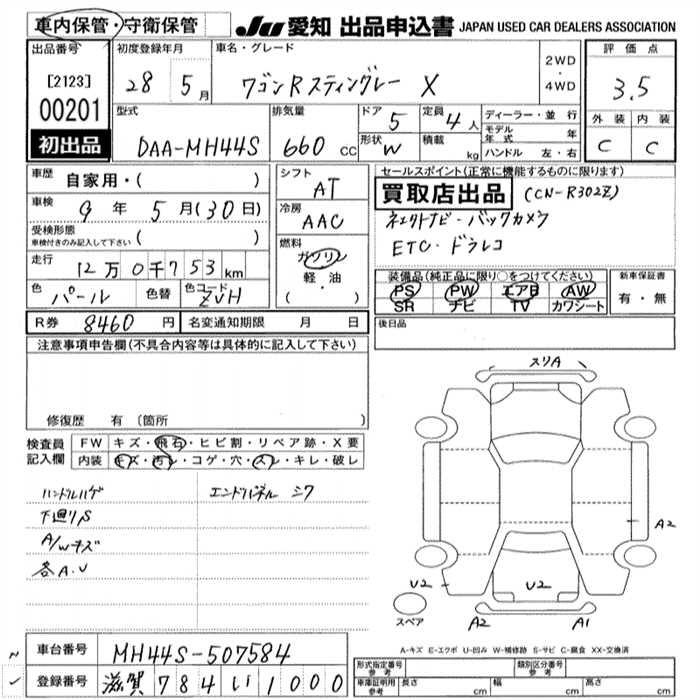 車内保管・守衛保管 JU 愛知 出品申込書 JAPAN USED CAR DEALERS ASSOCIATION
出品番号 初度登録年月 車名・グレード 2WD ・ 4WD 評価点
[2123] 28 5月 ワゴンR スティングレー X 3.5
00201
型式 排気量 ドア 5 定員 4人 ディーラー・並行 外装 内装
初出品 DAA-MH44S 660 CC 形状 W 積載 kg モデル年式 年 C C
ハンドル 左・右
車歴 自家用・( ) シフト AT セールスポイント(正常に機能するものに限ります)
買取店出品 (CN-R302Z)
車検 9年 5月(30日) 冷房 AAC ネエクトナビ・バックカメラ
受検形態 車検付きのみ記入して下さい ( ) ETC・ドラレコ
走行 12万0千753km 燃料 ガソリン 軽・油 ( )
装備品(純正品に限り○をつけてください) 新車保証書
色 パール 色替 色コード ZVH PS PW エアB AW 有・無
SR ナビ TV カワシート
R券 8460円 名変通知期限 月 日 後日品
注意事項申告欄(不具合内容等は具体的に記入して下さい)
修復歴 有 〔箇所 〕
検査員記入欄 FW キズ・飛石・ヒビ割・リペア跡・X要
内装 キズ・汚レ・コゲ・穴・スレ・キレ・破レ
ハンドルハゲ エンドパネル シワ
下廻りS
A/Wキズ
各A.U
スリA
A2
U2 U2
スペア A2 A1
A-キズ E-エクボ U-凹み W-補修跡 S-サビ C-腐食 XX-交換済
車台番号 MH44S-507584
登録番号 滋賀 784 い 1000
形式指定番号 参考 類別区分番号 参考
車庫証明用 参考 長さ cm 幅 cm 高さ cm